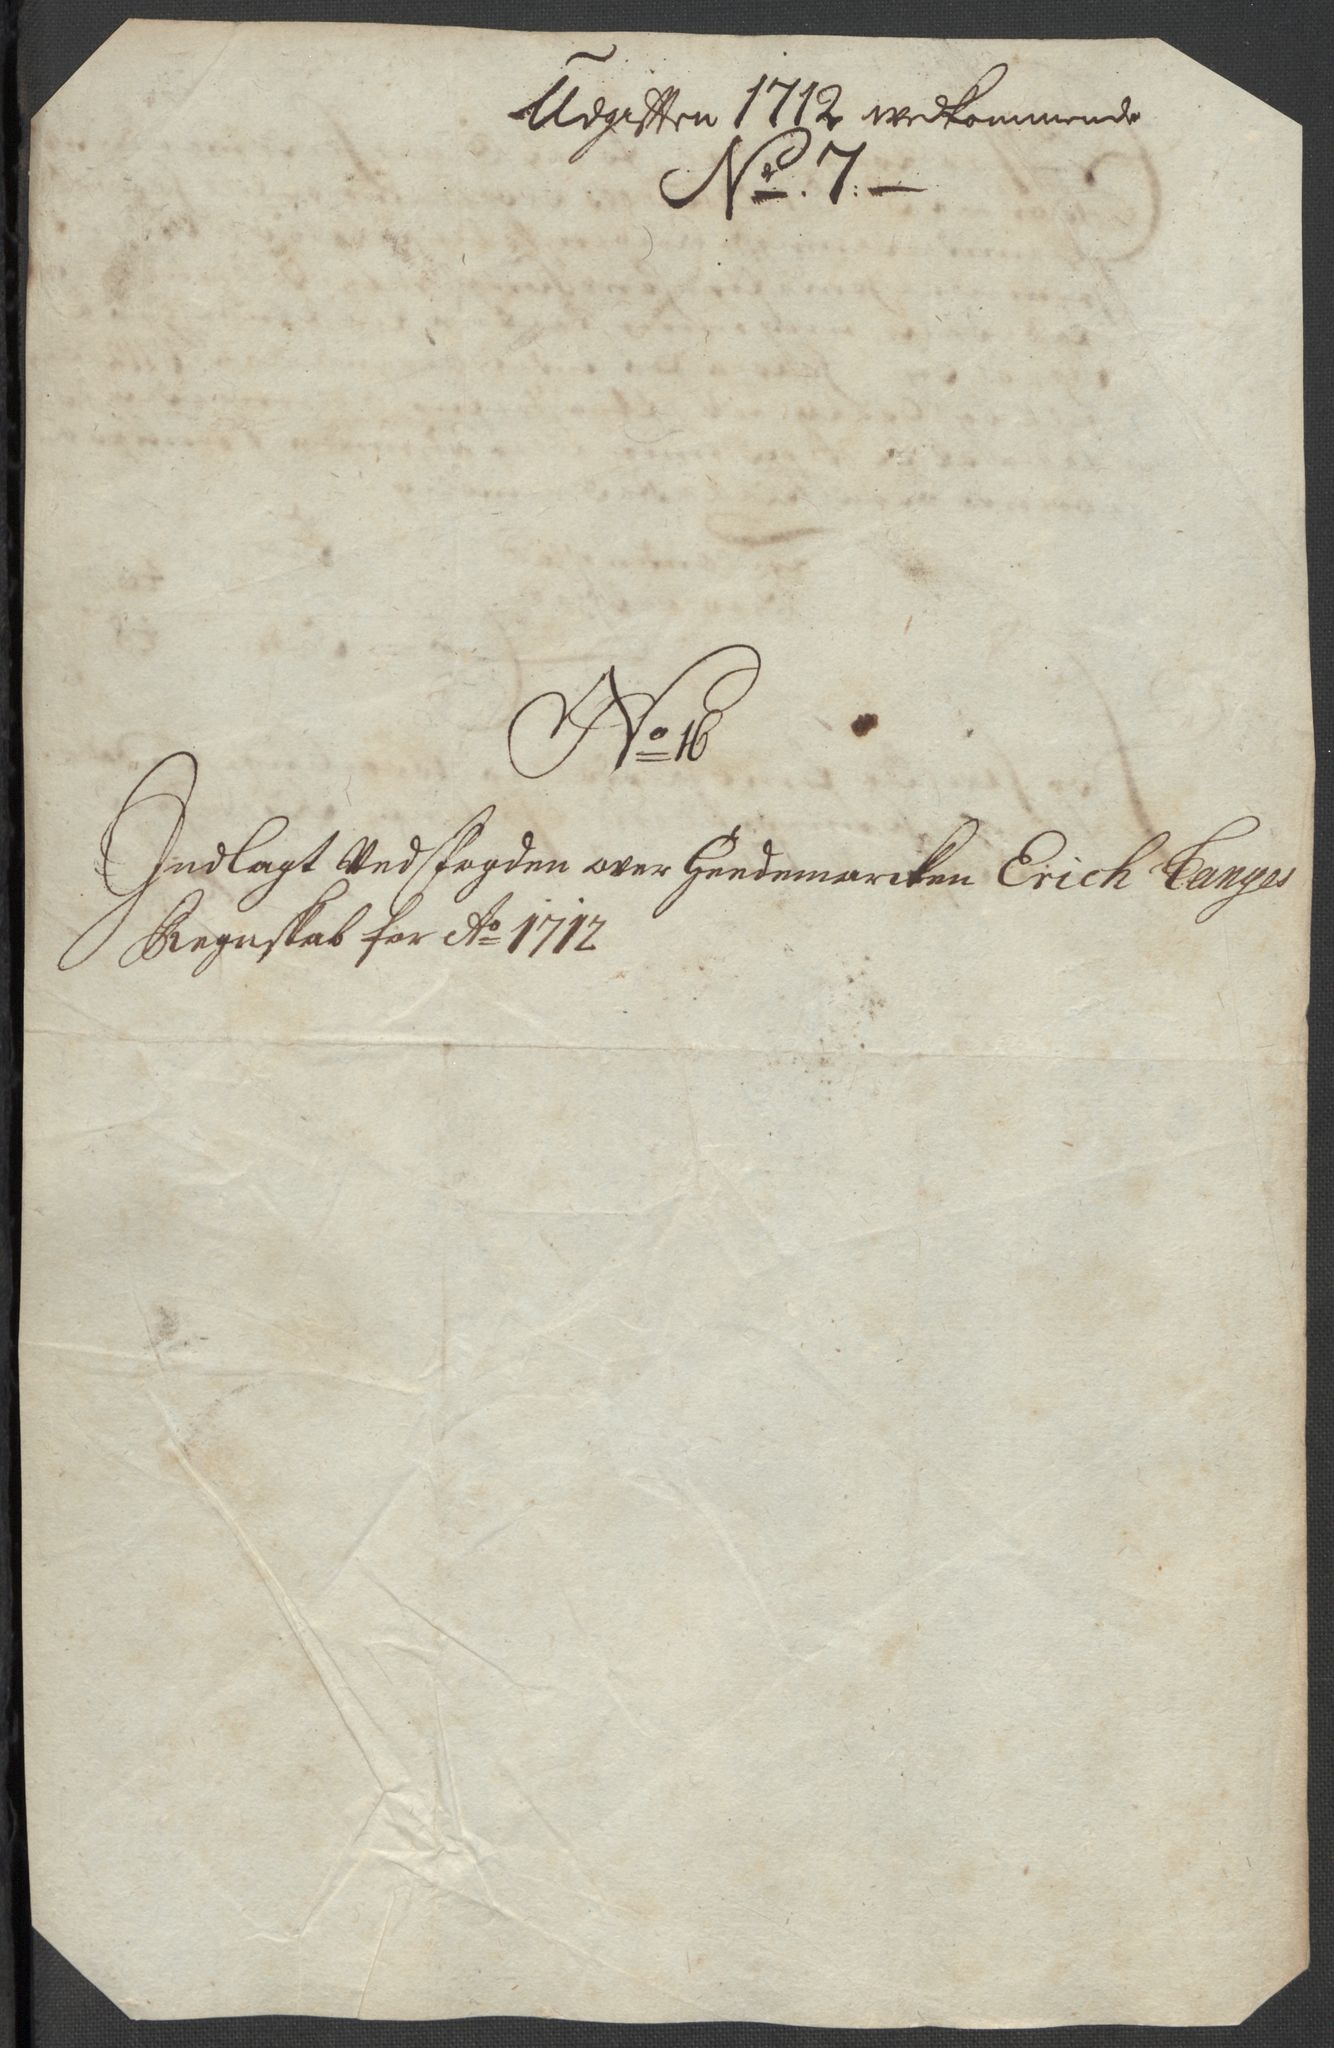 Udgifften 1712 vedkommende
No. 7.
No 16
Indlagt Ved Fogden over Heedemarcken Erich Tanges
Regnskab for Ao 1712